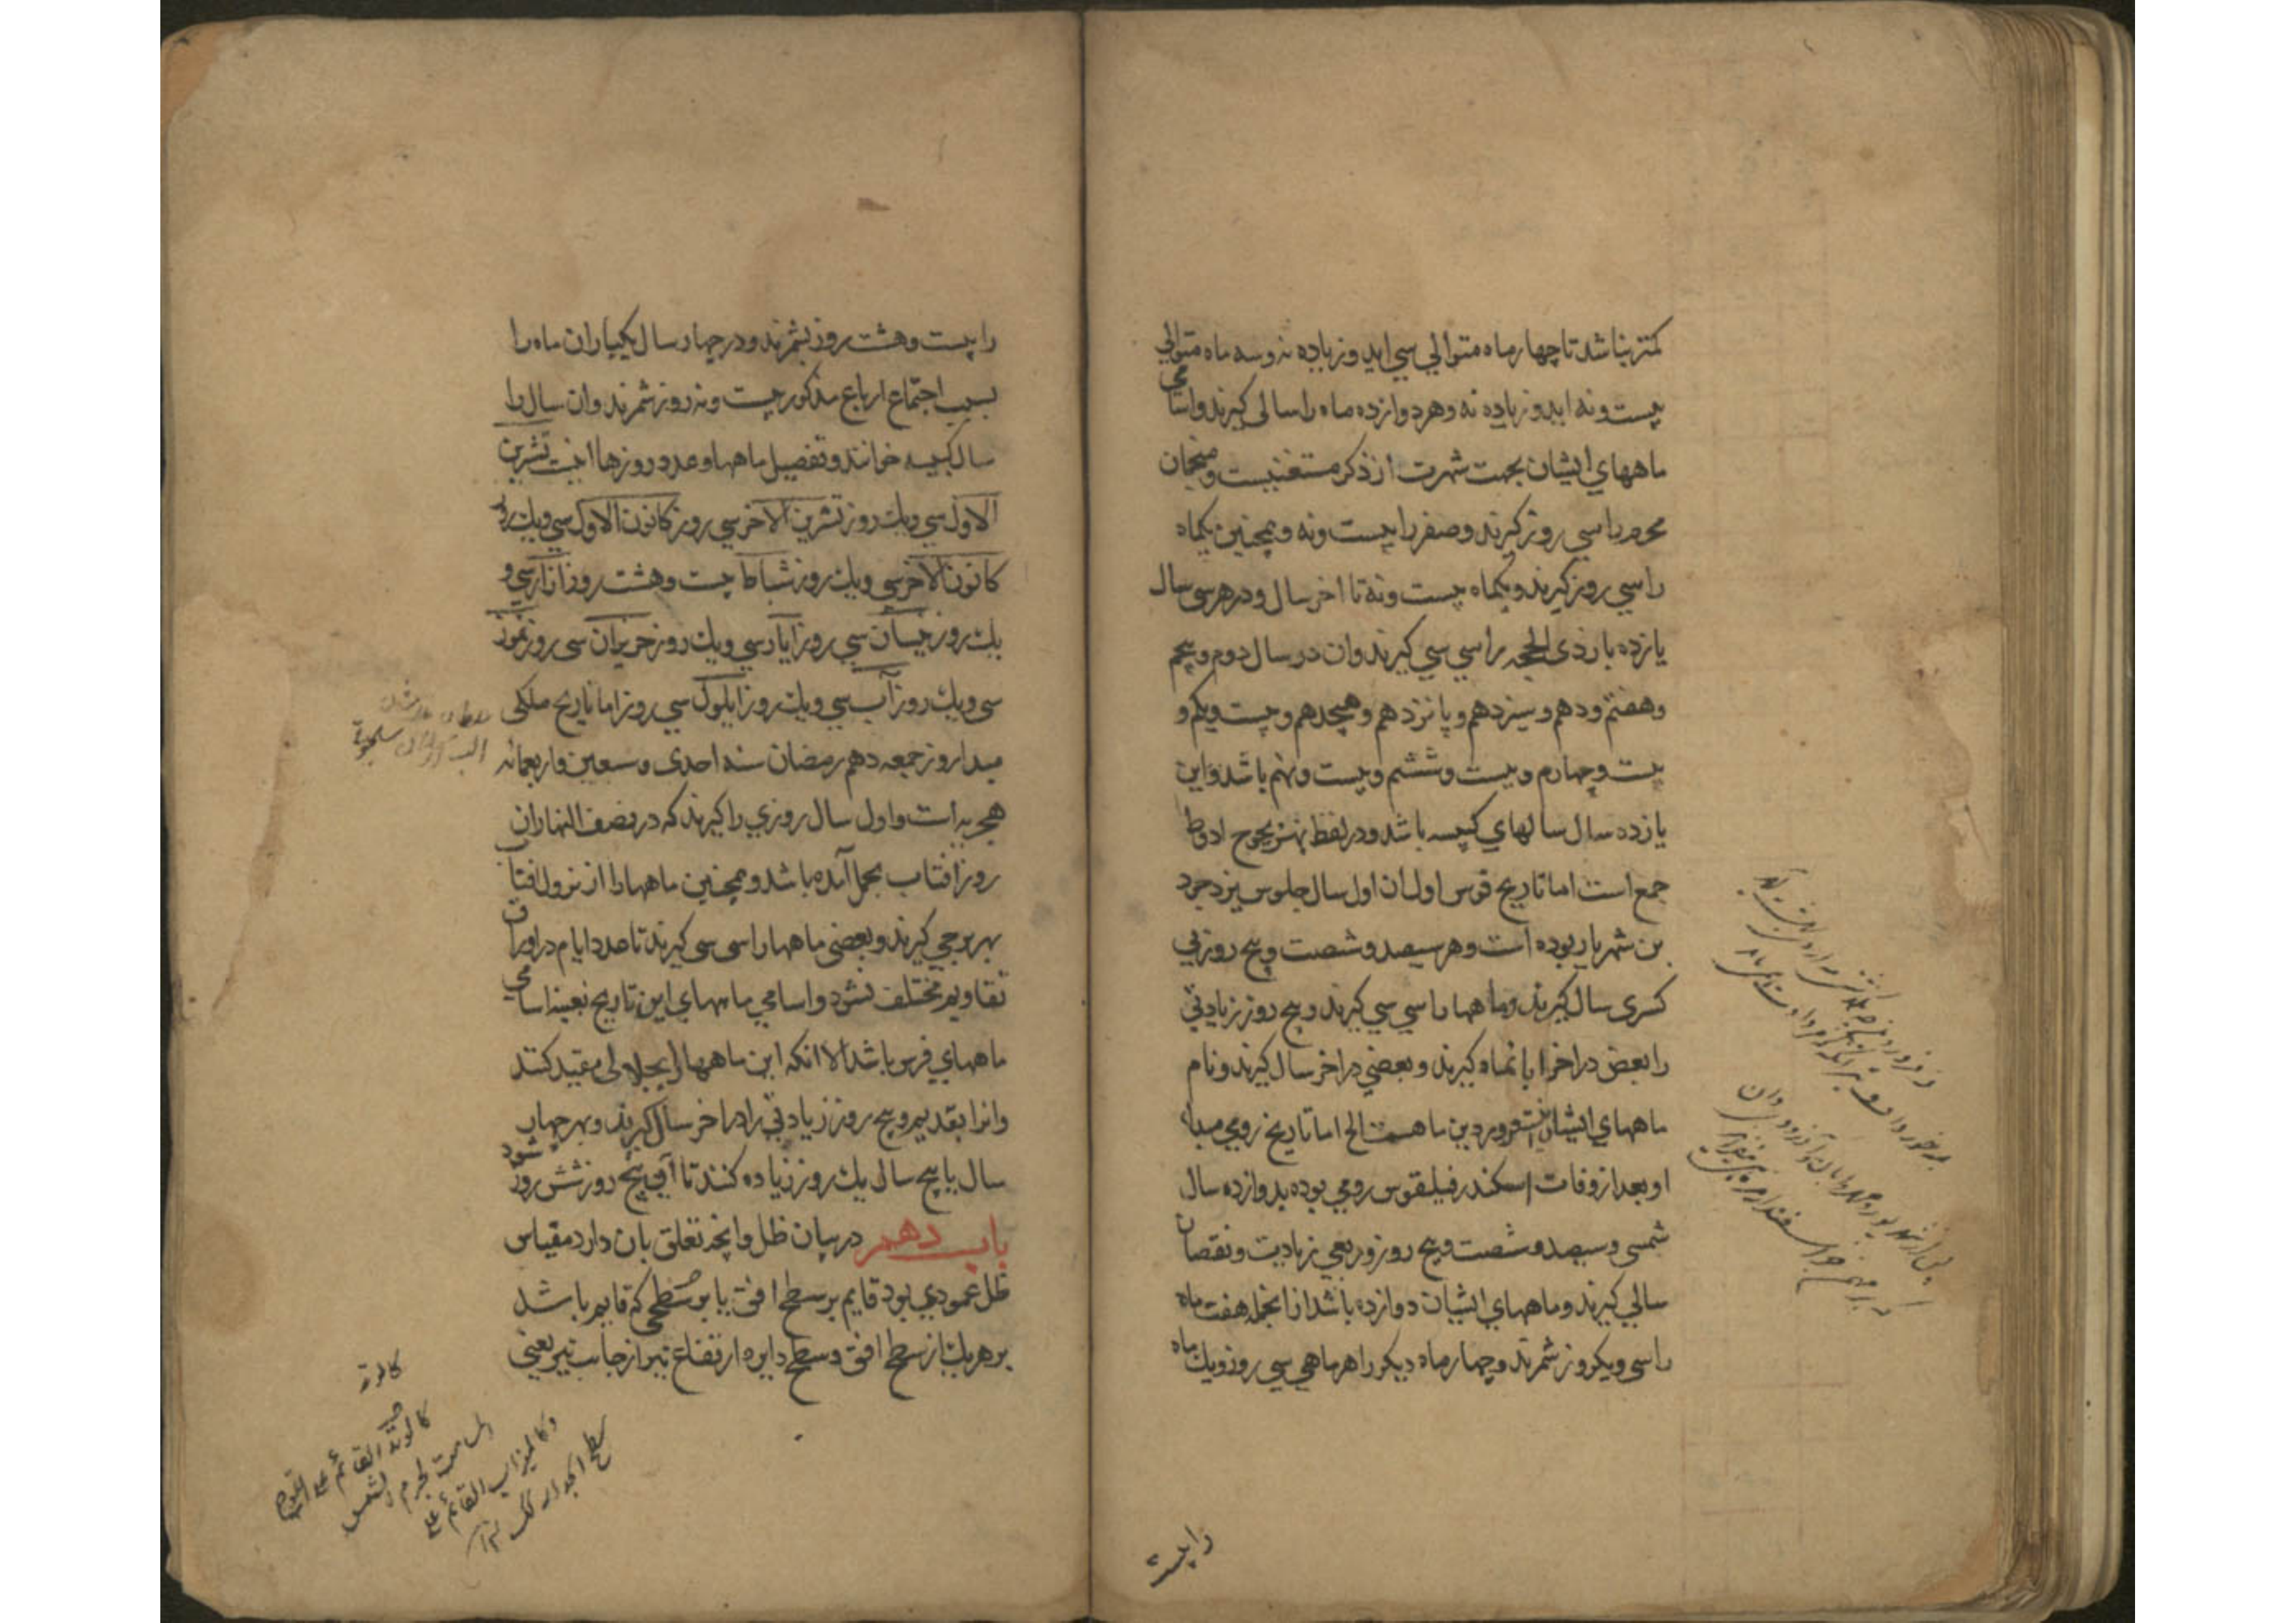 کمتر نباشد تا چهار ماه متوالی سی اید و زیاده نه و سه ماه متوالی
بیست و نه اید و زیاده نه و هر دوازده ماه را سالی کیرند و اسامی
ماههای ایشان بجهت شهرت از ذکر مستغنیست و منجمان
محرم را سی روز کیرند و صفر را بیست و نه و همچنین یکماه
را سی روز کیرند و یکماه بیست و نه تا اخر سال و در هر سی سال
یازده بار ذی الحجه را سی سی کیرند و ان در سال دوم و پنجم
و هفتم و دهم و سیزدهم و پانزدهم و هیجدهم و بیست و یکم و
بیست و چهارم و بیست و ششم و بیست و نهم باشد و این
یازده سال سالهای کبیسه باشد و در لفظ بهزیجوح ادوط
جمع است اما تاریخ فرس اول ان اول سال جلوس یزدجرد
بن شهریار بوده است و هر سیصد و شصت و پنج روز بی
کسری سال کیرند و ماهها را سی سی کیرند و پنج روز زیادتی
را بعض در اخر ابانماه کیرند و بعضی در اخر سال کیرند و نام
ماههای ایشان اینست فروردین ماه الخ اما تاریخ رومی مبداء
او بعد از وفات اسکندر فیلقوس رومی بوده بدوازده سال
شمسی و سیصد و شصت و پنج روز و ربعی بی زیادت و نقصان
سالی کیرند و ماههای ایشان دوازده باشد از انجمله هفت ماه
را سی و یکروز شمرند و چهار ماه دیکر را هر ماهی سی روز و یک ماه
را بیست
را بیست و هشت روز بشمرند و در چهار سال یکبار ان ماه را
بسبب اجتماع ارباع مذکور بیست و نه روز شمرند و ان سال را
سال کبیسه خوانند و تفصیل ماهها و عدد روزها اینست تشرین
الاول سی و یک روز تشرین الاخر سی روز کانون الاول سی و یک روز
کانون الاخر سی و یک روز شباط بیست و هشت روز اذار سی و
یک روز نیسان سی روز ایار سی و یک روز حزیران سی روز تموز
سی و یک روز آب سی و یک روز ایلول سی روز اما تاریخ ملکی
مبدا روز جمعه دهم رمضان سنه احدی و سبعین و اربعمائه
هجریه است و اول سال روزی را کیرند که در نصف النهار ان
روز افتاب بحمل آمده باشد و همچنین ماهها را از نزول افتاب
بهر برجی کیرند و بعضی ماهها را سی سی کیرند تا عدد ایام در اوراق
تقاویم مختلف نشود و اسامی ماههای این تاریخ بعینه اسامی
ماههای فرس باشد الا انکه این ماهها را بجلالی مقید کنند
و انرا بقدیم و پنج روز زیادتی را در اخر سال کیرند و بهر چهار
سال یا پنج سال یک روز زیاده کنند تا آن پنج روز شش روز شود
باب دهم در بیان ظل و انچه تعلق بان دارد مقیاس
ظل عمودی بود قایم بر سطح افق یا بر سطحی که قایم باشد
بر هر یک از سطح افق و سطح دایره ارتفاع نیر از جانب نیر یعنی
القائم علی
لجرم الشمس
و کالمیزاب القائم علی
سطح الجدار